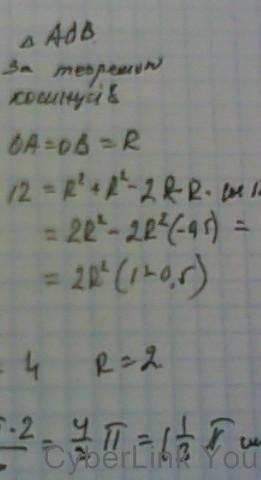 △ AOB.
За теоремою
косинусів
OA = OB = R
12 = R² + R² - 2R·R·
= 2R² - 2R²(-0,5) =
= 2R²(1+0,5)
4 R = 2
·2 = 4/3 π = 1 1/3 π
CyberLink You